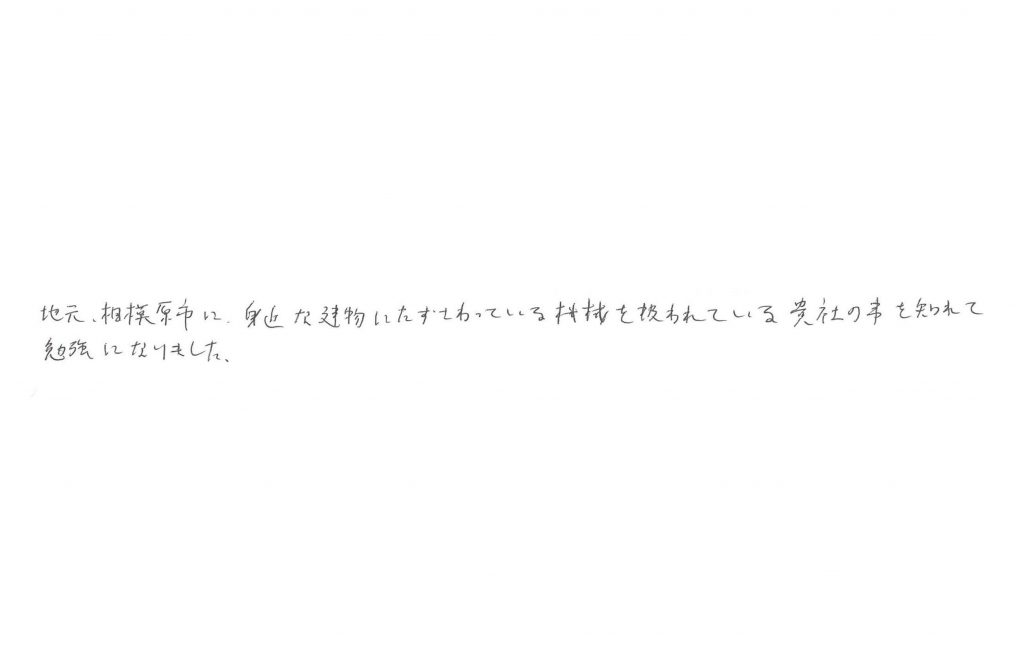 地元、相模原市に、身近な建物にたずさわっている機械を扱われている貴社の事を知れて
勉強になりました。